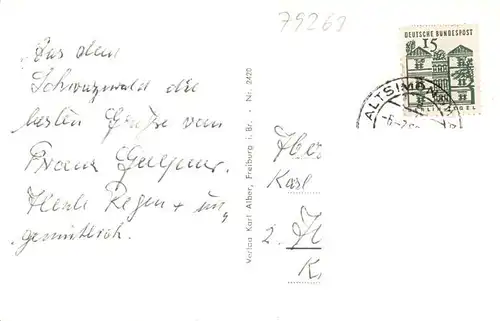 79263
DEUTSCHE BUNDESPOST
15
TEGEL
ALTSIMON
-6.-
„Aus dem
Schwarzwald die
besten Grüße von
Franz
Heute Regen + un„
gemütlich.
Verlag Karl Alber, Freiburg i. Br. - Nr. 2420
Karl
2.